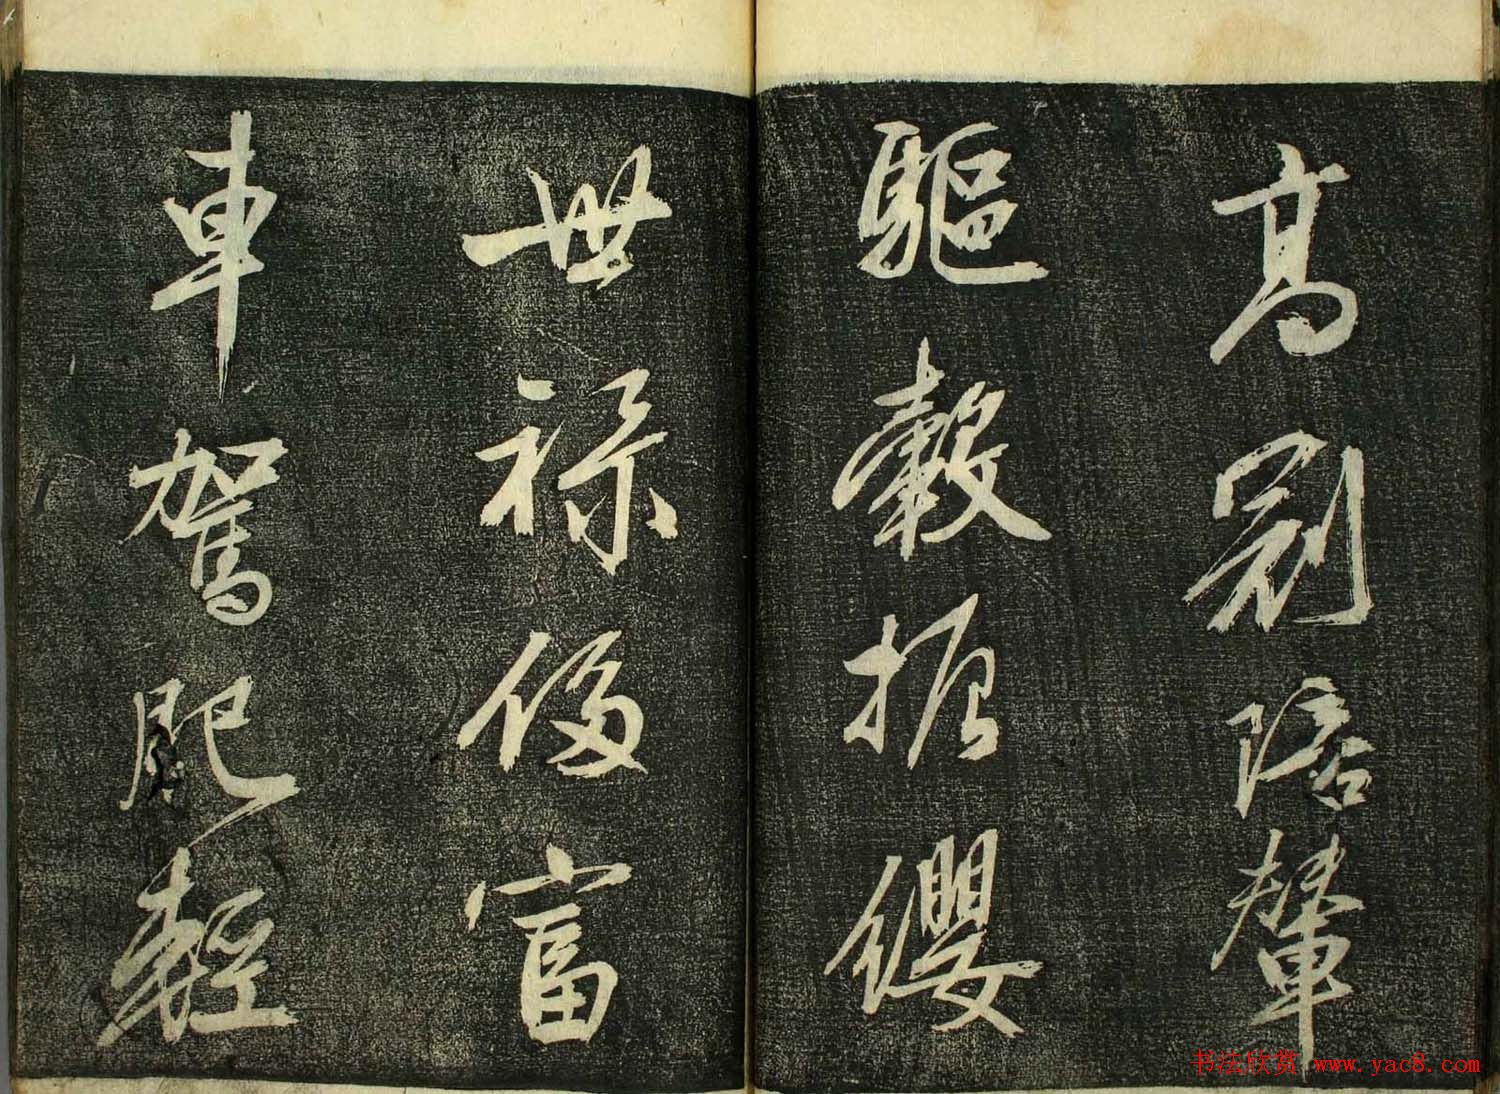 高冠陪輦
驅轂振纓
世祿侈富
車駕肥輕
书法欣赏 www.yac8.com